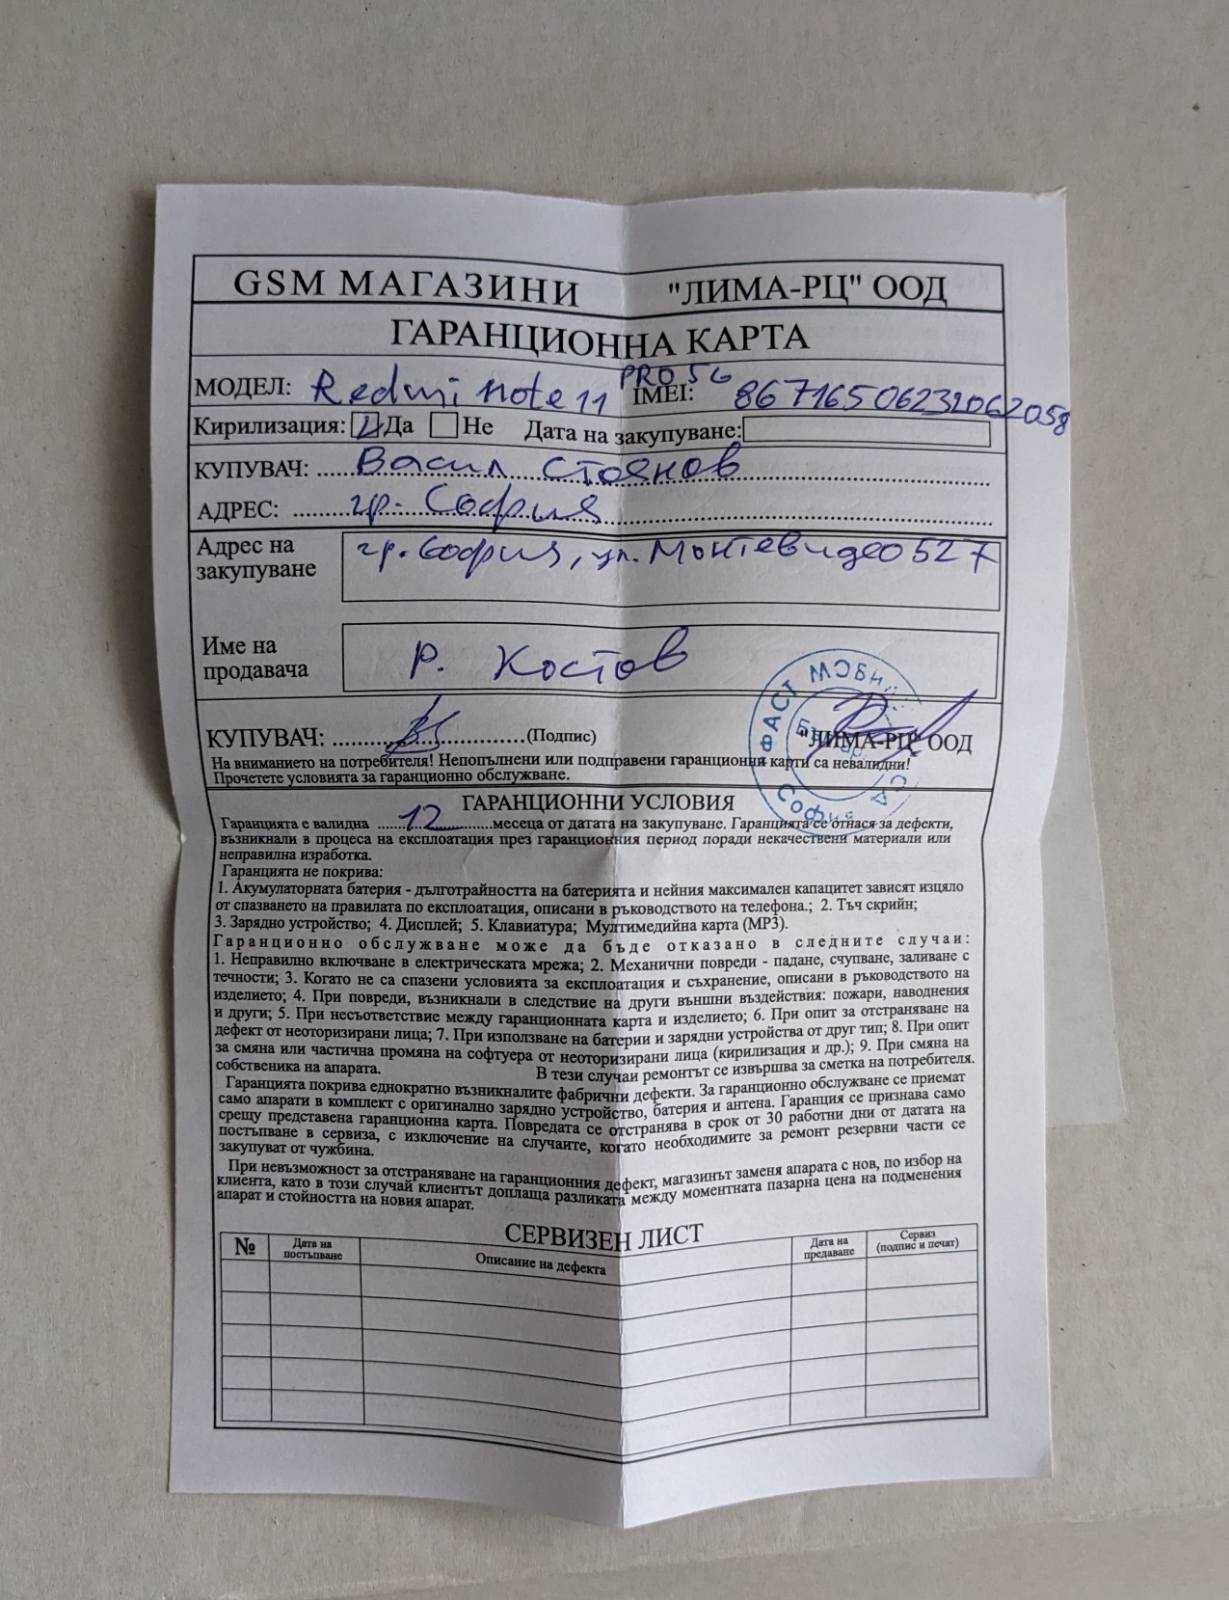 GSM МАГАЗИНИ "ЛИМА-РЦ" ООД
ГАРАНЦИОННА КАРТА
МОДЕЛ: Redmi note 11 PRO 5G IMEI:
Кирилизация: Да Не Дата на закупуване:
КУПУВАЧ: Васил Стоянов
АДРЕС: гр. София
Адрес на закупуване гр. София, ул. Монтевидео 527
Име на продавача Р. Костов
КУПУВАЧ: (Подпис) "ЛИМА-РЦ" ООД
ФАСТ МОБИ
София
На вниманието на потребителя! Непопълнени или подправени гаранционни карти са невалидни!
Прочетете условията за гаранционно обслужване.
ГАРАНЦИОННИ УСЛОВИЯ
Гаранцията е валидна 12 месеца от датата на закупуване. Гаранцията се отнася за дефекти,
възникнали в процеса на експлоатация през гаранционния период поради некачествени материали или
неправилна изработка.
Гаранцията не покрива:
1. Акумулаторната батерия - дълготрайността на батерията и нейния максимален капацитет зависят изцяло
от спазването на правилата по експлоатация, описани в ръководството на телефона.; 2. Тъч скрийн;
3. Зарядно устройство; 4. Дисплей; 5. Клавиатура; Мултимедийна карта (MP3).
Гаранционно обслужване може да бъде отказано в следните случаи:
1. Неправилно включване в електрическата мрежа; 2. Механични повреди - падане, счупване, заливане с
течности; 3. Когато не са спазени условията за експлоатация и съхранение, описани в ръководството на
изделието; 4. При повреди, възникнали в следствие на други външни въздействия: пожари, наводнения
и други; 5. При несъответствие между гаранционната карта и изделието; 6. При опит за отстраняване на
дефект от неоторизирани лица; 7. При използване на батерии и зарядни устройства от друг тип; 8. При опит
за смяна или частична промяна на софтуера от неоторизирани лица (кирилизация и др.); 9. При смяна на
собственика на апарата. В тези случаи ремонтът се извършва за сметка на потребителя.
Гаранцията покрива еднократно възникналите фабрични дефекти. За гаранционно обслужване се приемат
само апарати в комплект с оригинално зарядно устройство, батерия и антена. Гаранция се признава само
срещу представена гаранционна карта. Повредата се отстранява в срок от 30 работни дни от датата на
постъпване в сервиза, с изключение на случаите, когато необходимите за ремонт резервни части се
закупуват от чужбина.
При невъзможност за отстраняване на гаранционния дефект, магазинът заменя апарата с нов, по избор на
клиента, като в този случай клиентът доплаща разликата между моментната пазарна цена на подменения
апарат и стойността на новия апарат.
СЕРВИЗЕН ЛИСТ
№ Дата на постъпване Описание на дефекта Дата на предаване Сервиз (подпис и печат)